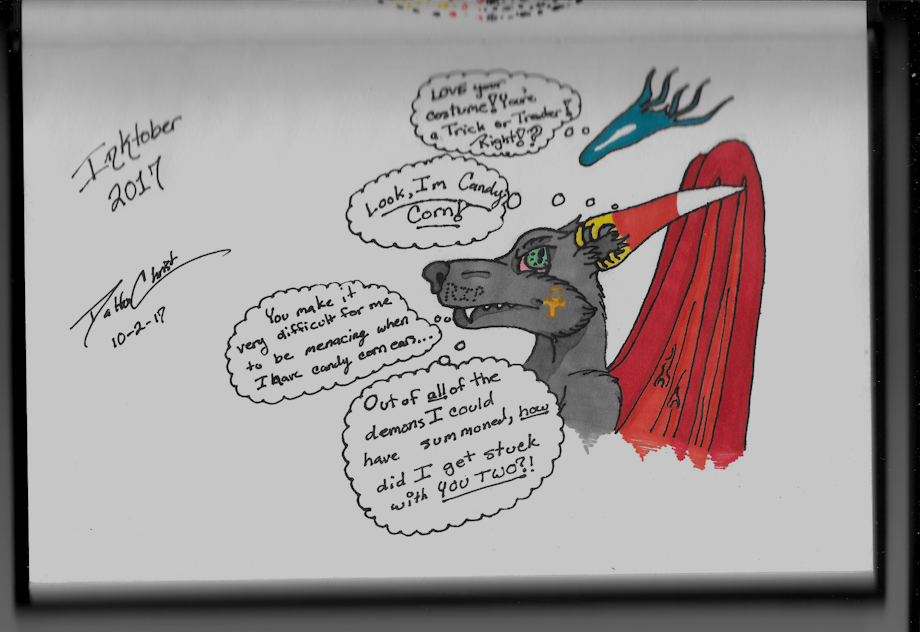 Inktober
2017
10-2-17
LOVE your
costume! You're
a Trick or Treader!
Right!?
Look, I'm Candy
Corn!
You make it
very difficult for me
to be menacing when
I have candy corn ears...
Out of all of the
demons I could
have summoned, how
did I get stuck
with YOU TWO?!